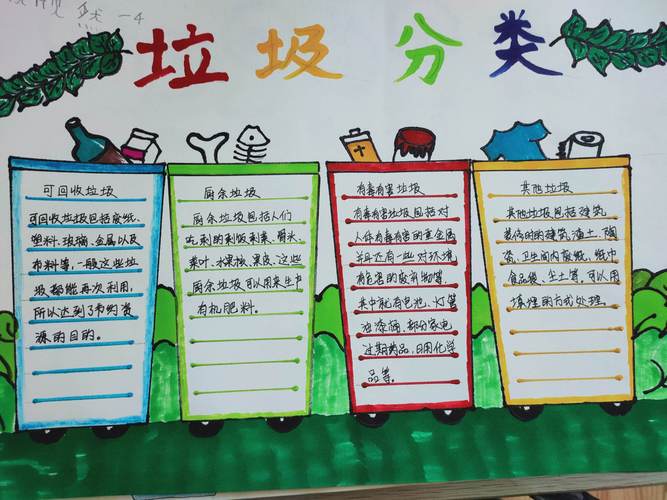 然 一4
垃圾分类
可回收垃圾
可回收垃圾包括废纸、
塑料、玻璃、金属以及
布料等,一般这些垃
圾都能再次利用,
所以达到了节约资
源的目的。
厨余垃圾
厨余垃圾包括人们
吃剩的剩饭剩菜、骨头、
菜叶、水果核、果皮、这些
厨余垃圾可以用来生产
有机肥料。
有毒有害垃圾
有毒有害垃圾包括对
人体有毒有害的重金属
并且还有一些对环境
有危害的废弃物等。
其中就有电池、灯管
油漆桶、部份家电
过期药品、日用化学
品等。
其他垃圾
其他垃圾包括建筑
装修时的建筑渣土、陶
瓷、卫生间废纸、纸巾
食品袋、尘土等。可以用
填埋的方式处理